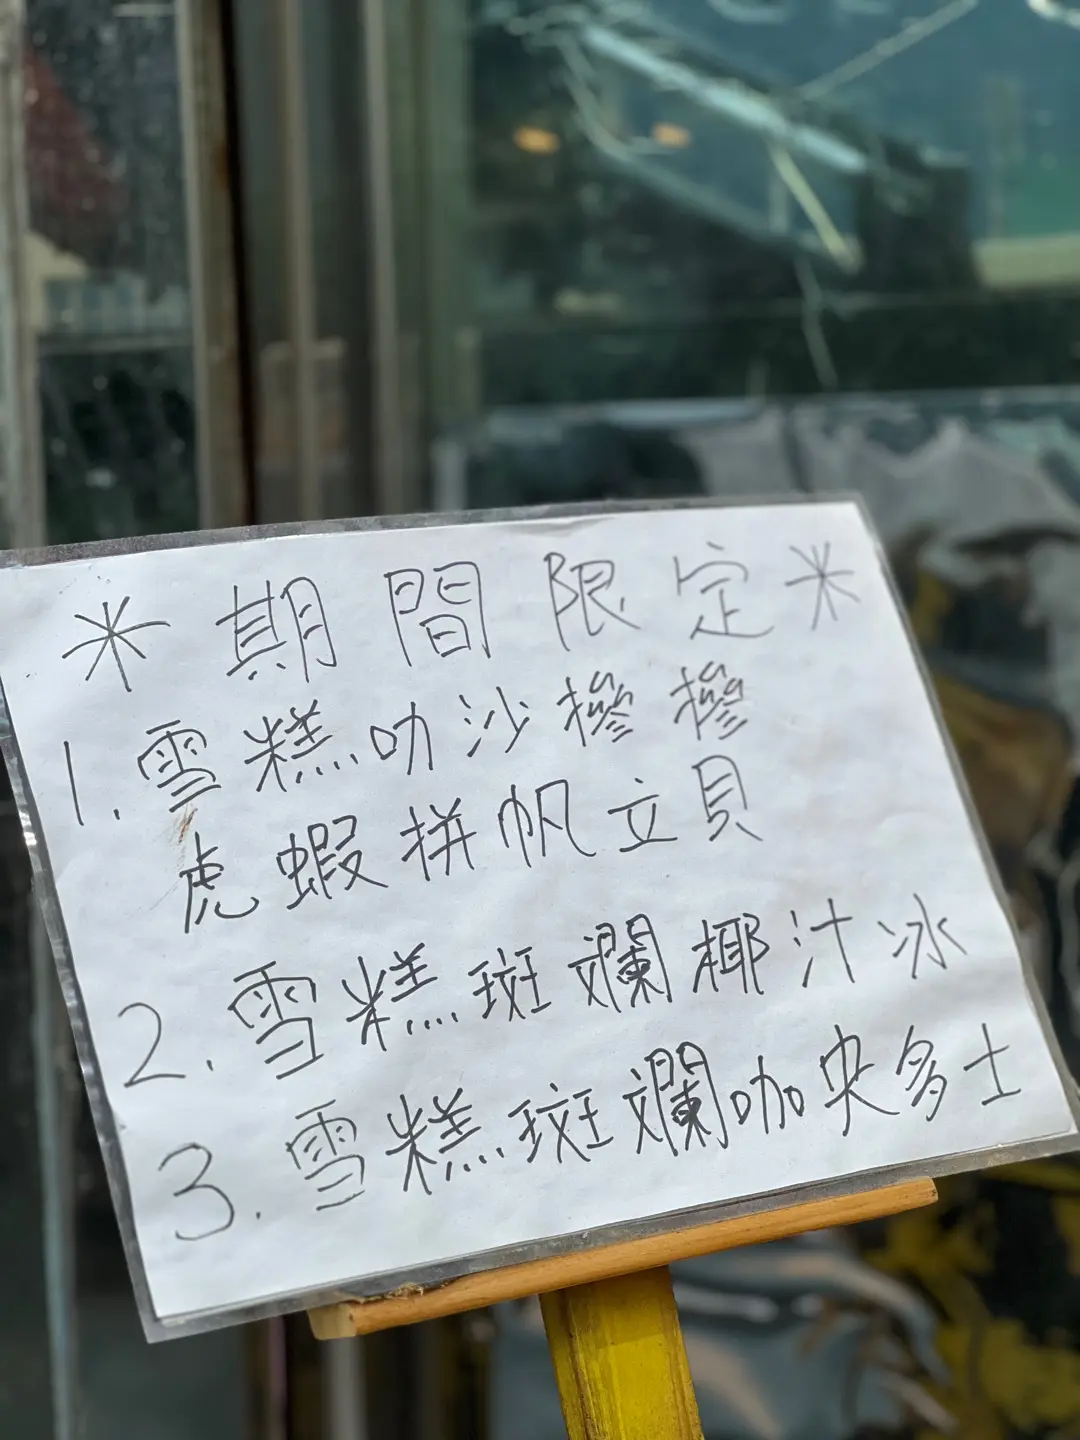 *期間限定*
1.雪糕叻沙摻摻
虎蝦拼帆立貝
2.雪糕斑斕椰汁冰
3.雪糕斑斕咖央多士